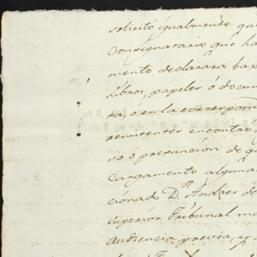 solicitó igualmente que
Consignatario que ha
mento declarara bax
libros, papeles ó docum
ra, ó en la correspon
remitente encontra
vo ó presuncion de q
cargamento alguna
cionad D.n Andres de
Superior Tribunal ma
Audiencia previa, y